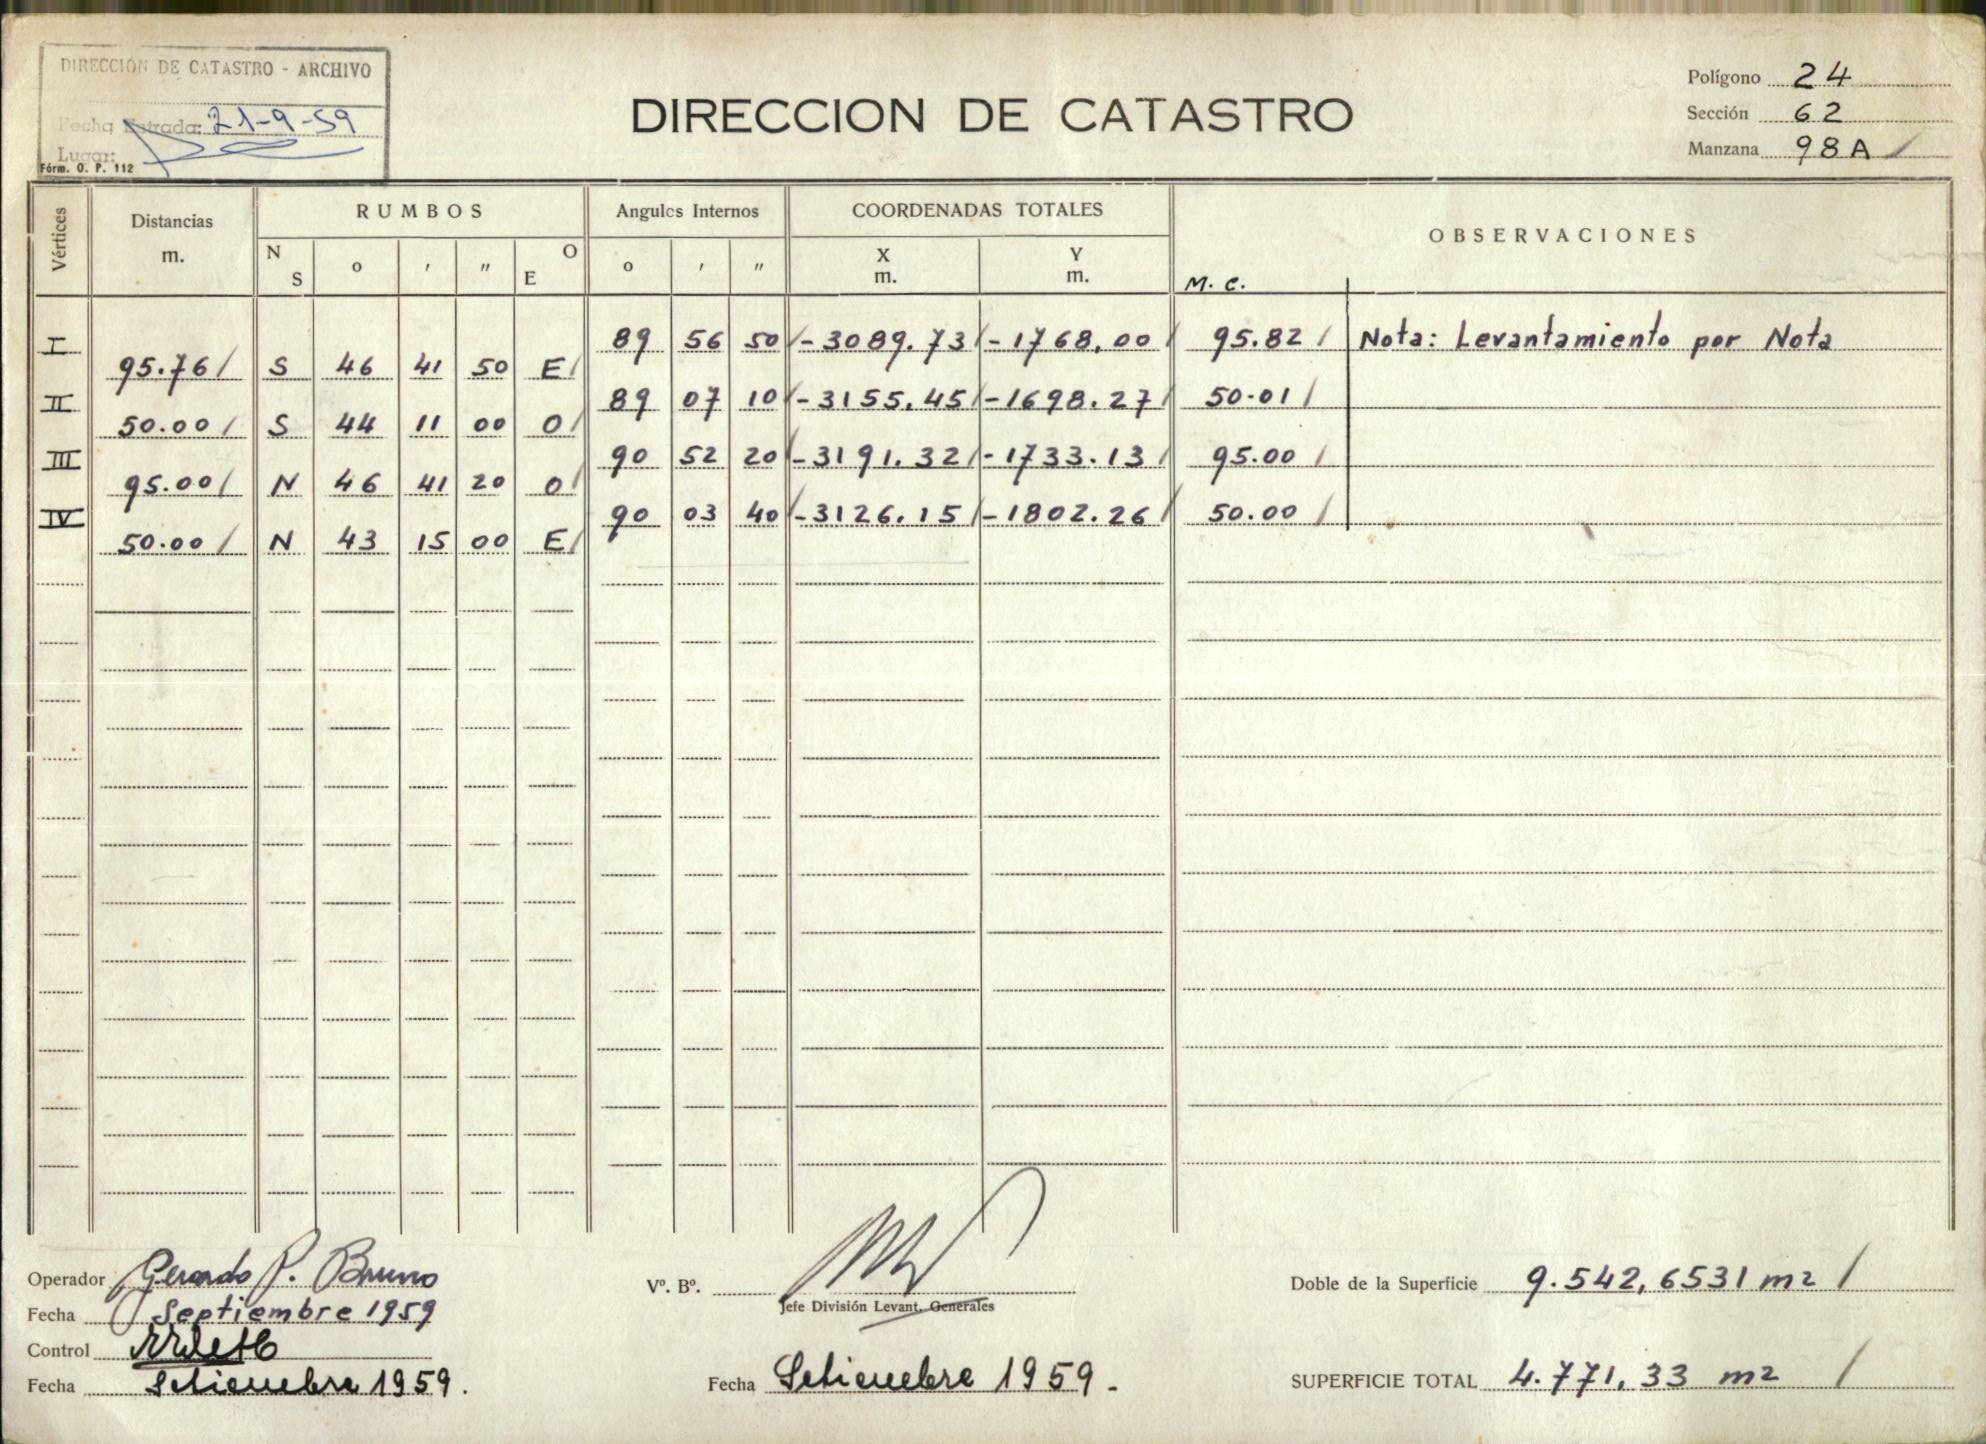 DIRECCIÓN DE CATASTRO - ARCHIVO
Fecha Entrada: 21-9-59
Lugar:
Fórm. O. P. 112
DIRECCION DE CATASTRO
Polígono 24
Sección 62
Manzana 98A
Vértices
Distancias
m.
RUMBOS
N
S
o
'
"
O
E
Angulos Internos
o
'
"
COORDENADAS TOTALES
X
m.
Y
m.
OBSERVACIONES
M. C.
I 89 56 50 -3089.73 -1768,00 95.82 Nota: Levantamiento por Nota
95.76 S 46 41 50 E
II 89 07 10 -3155.45 -1698.27 50.01
50.00 S 44 11 00 O
III 90 52 20 -3191.32 -1733.13 95.00
95.00 N 46 41 20 O
IV 90 03 40 -3126.15 -1802.26 50.00
50.00 N 43 15 00 E
Operador Gerardo P. Bruno
Fecha Septiembre 1959
Control
Fecha Setiembre 1959.
Vº. Bº.
Jefe División Levant. Generales
Fecha Setiembre 1959.
Doble de la Superficie 9.542,6531 m2
SUPERFICIE TOTAL 4.771,33 m2